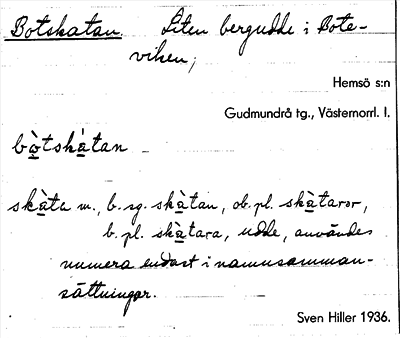 Botskatan. Liten bergudde i Bote-
viken;
Hemsö s:n
Gudmundrå tg., Västernorrl. l.
bò̲tskà̲tan
skà̲ta m., b. sg. skà̲tan, ob. pl. skà̲taror,
b. pl. skà̲tara, udde, användes
numera endast i namnsamman-
sättningar.
Sven Hiller 1936.